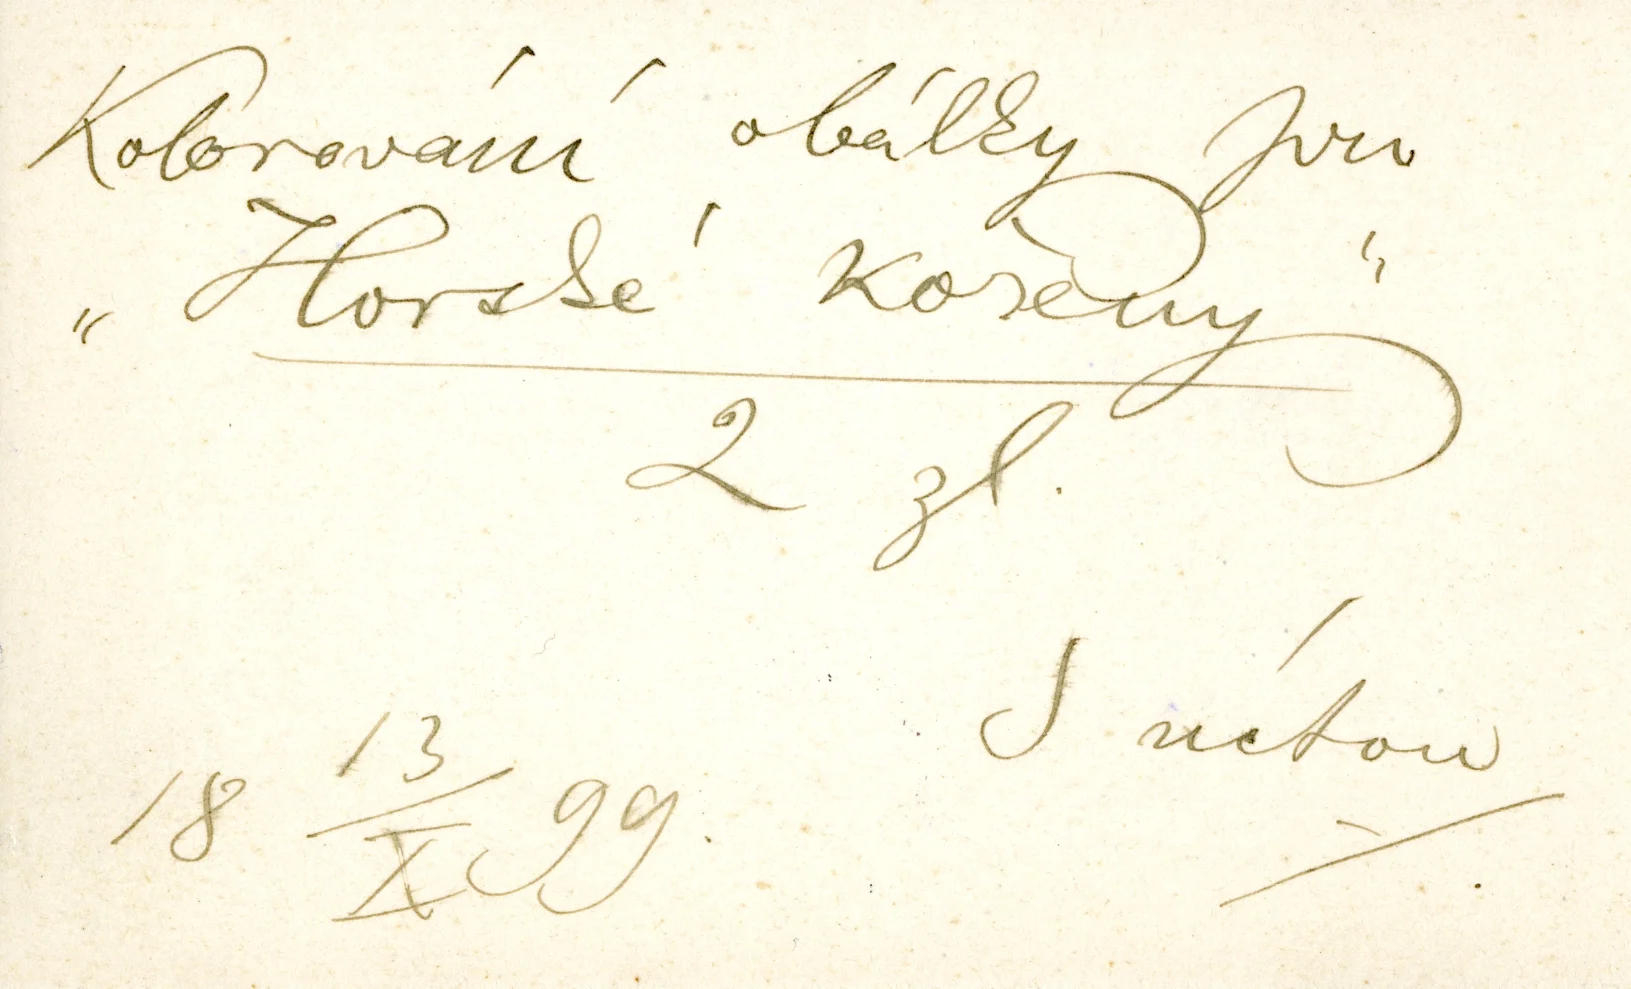 Kolorování obálky pro
„Horské kořeny“
2 zl.
S úctou
18 13/X 99.